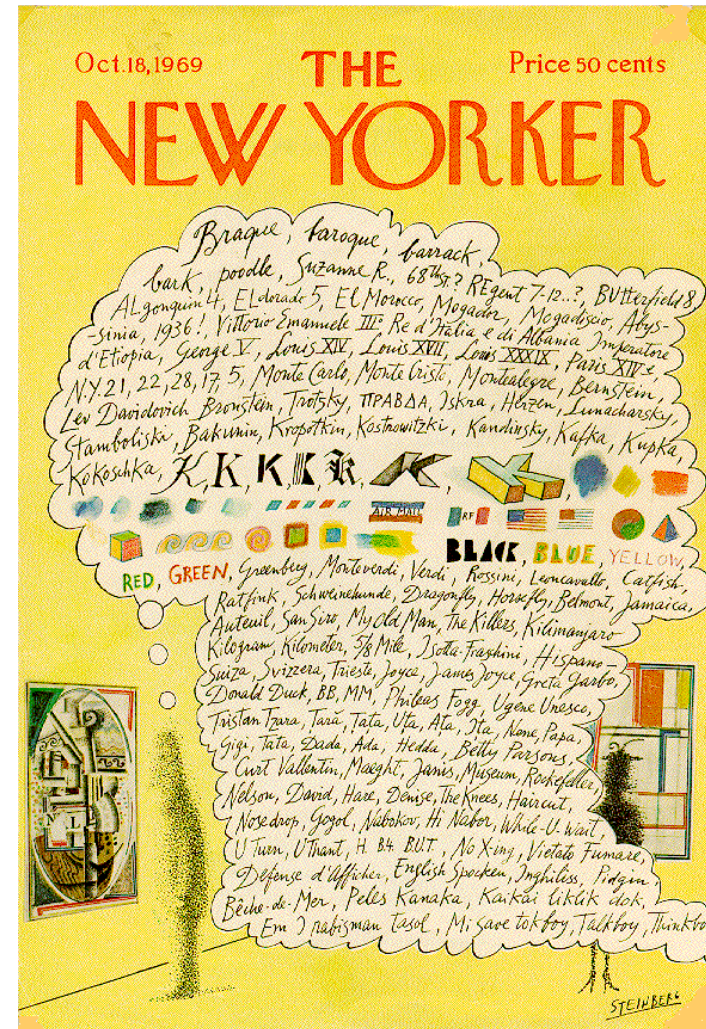 Oct.18,1969
THE
Price 50 cents
NEW YORKER
Braque, baroque, barrack,
bark, poodle, Suzanne R., 68th St.? REgent 7-12..?, BUtterfield 8,
ALgonquin 4, ELdorado 5, El Morocco, Mogador, Mogadiscio, Abys-
-sinia, 1936!, Vittorio Emanuele III° Re d'Italia e di Albania Imperatore
d'Etiopia, George V, Louis XIV, Louis XVII, Louis XXXIX, Paris XIVe,
N.Y. 21, 22, 28, 17, 5, Monte Carlo, Monte Cristo, Montealegre, Bernstein,
Lev Davidovich Bronstein, Trotzky, ПРАВДА, Iskra, Herzen, Lunacharsky,
Stamboliski, Bakunin, Kropotkin, Kostrowitzki, Kandinsky, Kafka, Kupka,
Kokoschka, K, K, K, K, K, K, K,
AIR MAIL RF
BLACK, BLUE, YELLOW,
RED, GREEN, Greenberg, Monteverdi, Verdi, Rossini, Leoncavallo, Catfish,
Ratfink, Schweinehunde, Dragonfly, Horsefly, Belmont, Jamaica,
Auteuil, San Siro, My Old Man, The Killers, Kilimanjaro
Kilogram, Kilometer, 5/8 Mile, Isotta-Fraschini, Hispano-
Suiza, Svizzera, Trieste, Joyce, James Joyce, Greta Garbo,
Donald Duck, BB, MM, Phileas Fogg, Ugene Unesco,
Tristan Tzara, Tară, Tata, Uta, Ata, Ita, None, Papa,
Gigi, Tata, Dada, Ada, Hedda, Betty Parsons,
Curt Vallentin, Maeght, Janis, Museum, Rockefeller,
Nelson, David, Hare, Denise, The Knees, Haircut,
Nosedrop, Gogol, Nabokov, Hi Nabor, While-U-Wait,
U Turn, U Thant, H. B4. BUT, No X-ing, Vietato Fumare,
Défense d'Afficher, English Spocken, Inghiliss, Pidgin,
Bêche-de-Mer, Peles Kanaka, Kaikai liklik dok,
Em I rabisman tasol, Mi save tokboy, Talkboy, Thinkbo
N I L
STEINBERG